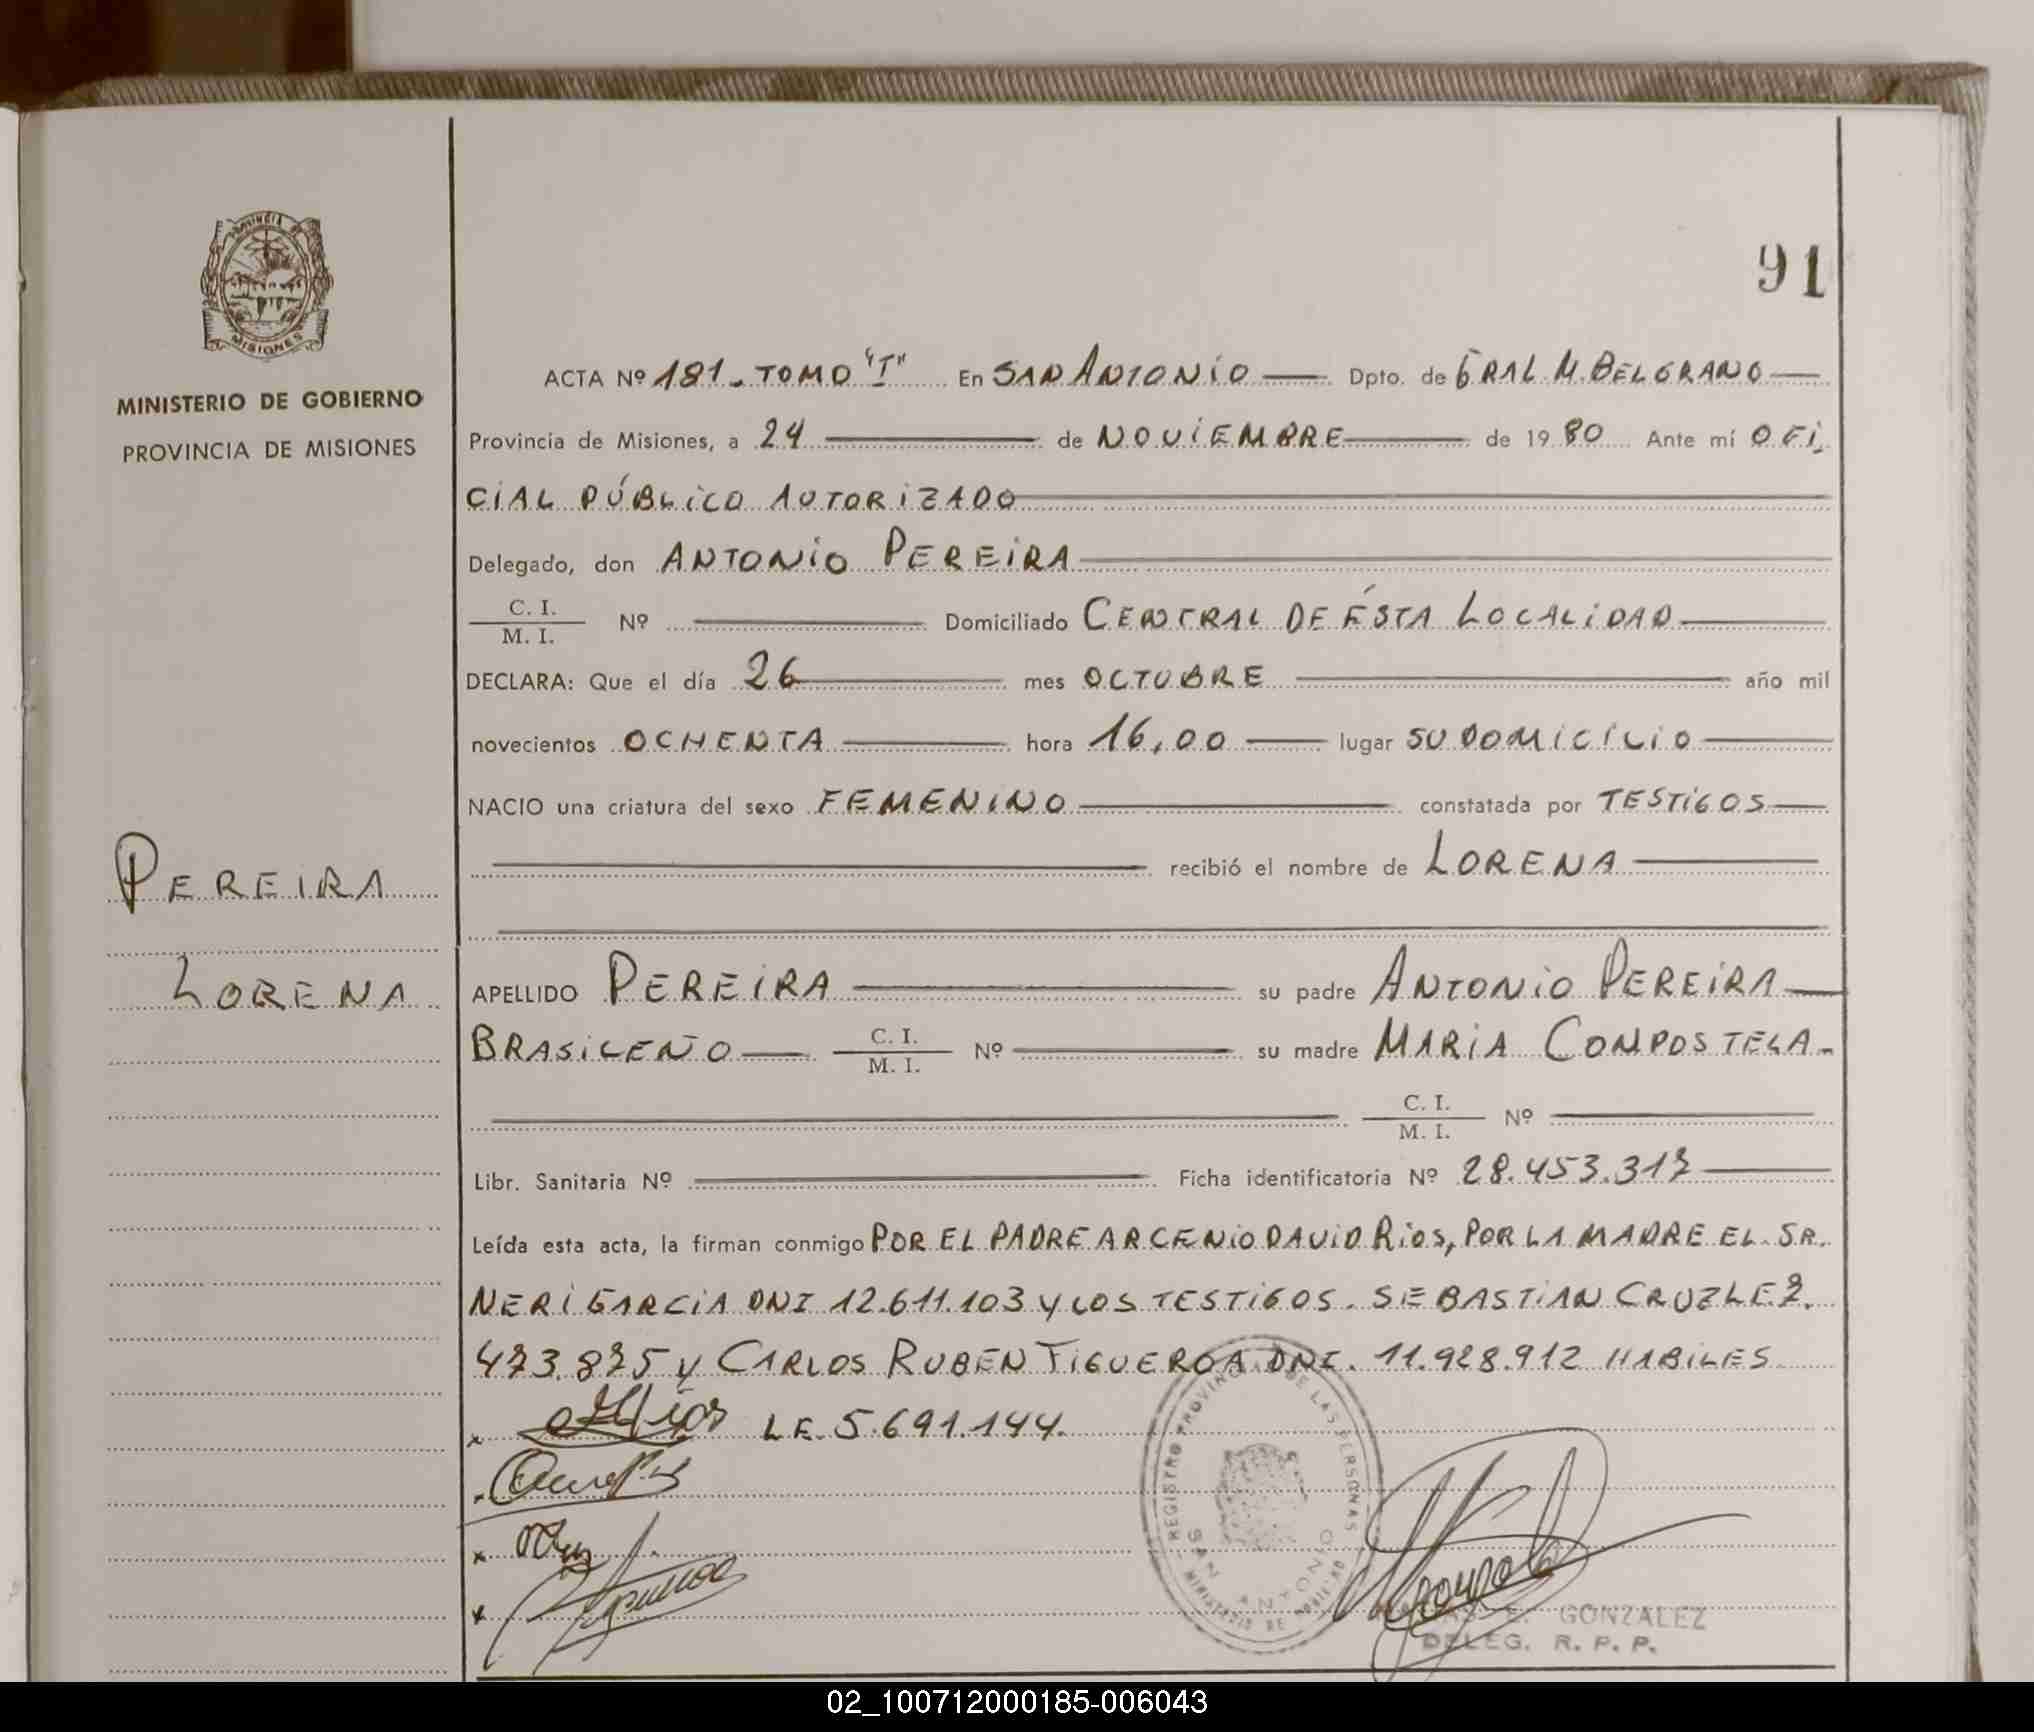 91
PROVINCIA DE
MISIONES
MINISTERIO DE GOBIERNO
PROVINCIA DE MISIONES
ACTA Nº 181. TOMO "I" En SAN ANTONIO Dpto. de GRAL M. BELGRANO
Provincia de Misiones, a 24 de NOVIEMBRE de 1980 Ante mí OFI
CIAL PÚBLICO AUTORIZADO
Delegado, don ANTONIO PEREIRA
C. I.
M. I. Nº Domiciliado CENTRAL DE ÉSTA LOCALIDAD
DECLARA: Que el día 26 mes OCTUBRE año mil
novecientos OCHENTA hora 16,00 lugar SU DOMICILIO
NACIO una criatura del sexo FEMENINO constatada por TESTIGOS
recibió el nombre de LORENA
PEREIRA
LORENA
APELLIDO PEREIRA su padre ANTONIO PEREIRA
BRASILEÑO C. I.
M. I. Nº su madre MARIA COMPOSTELA-
C. I.
M. I. Nº
Libr. Sanitaria Nº Ficha identificatoria Nº 28.453.317
Leída esta acta, la firman conmigo POR EL PADRE ARCENIO DAVID RIOS, POR LA MADRE EL SR.
NERI GARCIA DNI 12.611.103 Y LOS TESTIGOS. SEBASTIAN CRUZ LE 7.
473.875 Y CARLOS RUBEN FIGUEROA DNI. 11.928.912 HABILES
x LE. 5.691.144.
x
x
REGISTRO PROVINCIAL DE LAS PERSONAS
SAN ANTONIO
E. GONZALEZ
DELEG. R. P. P.
02_100712000185-006043